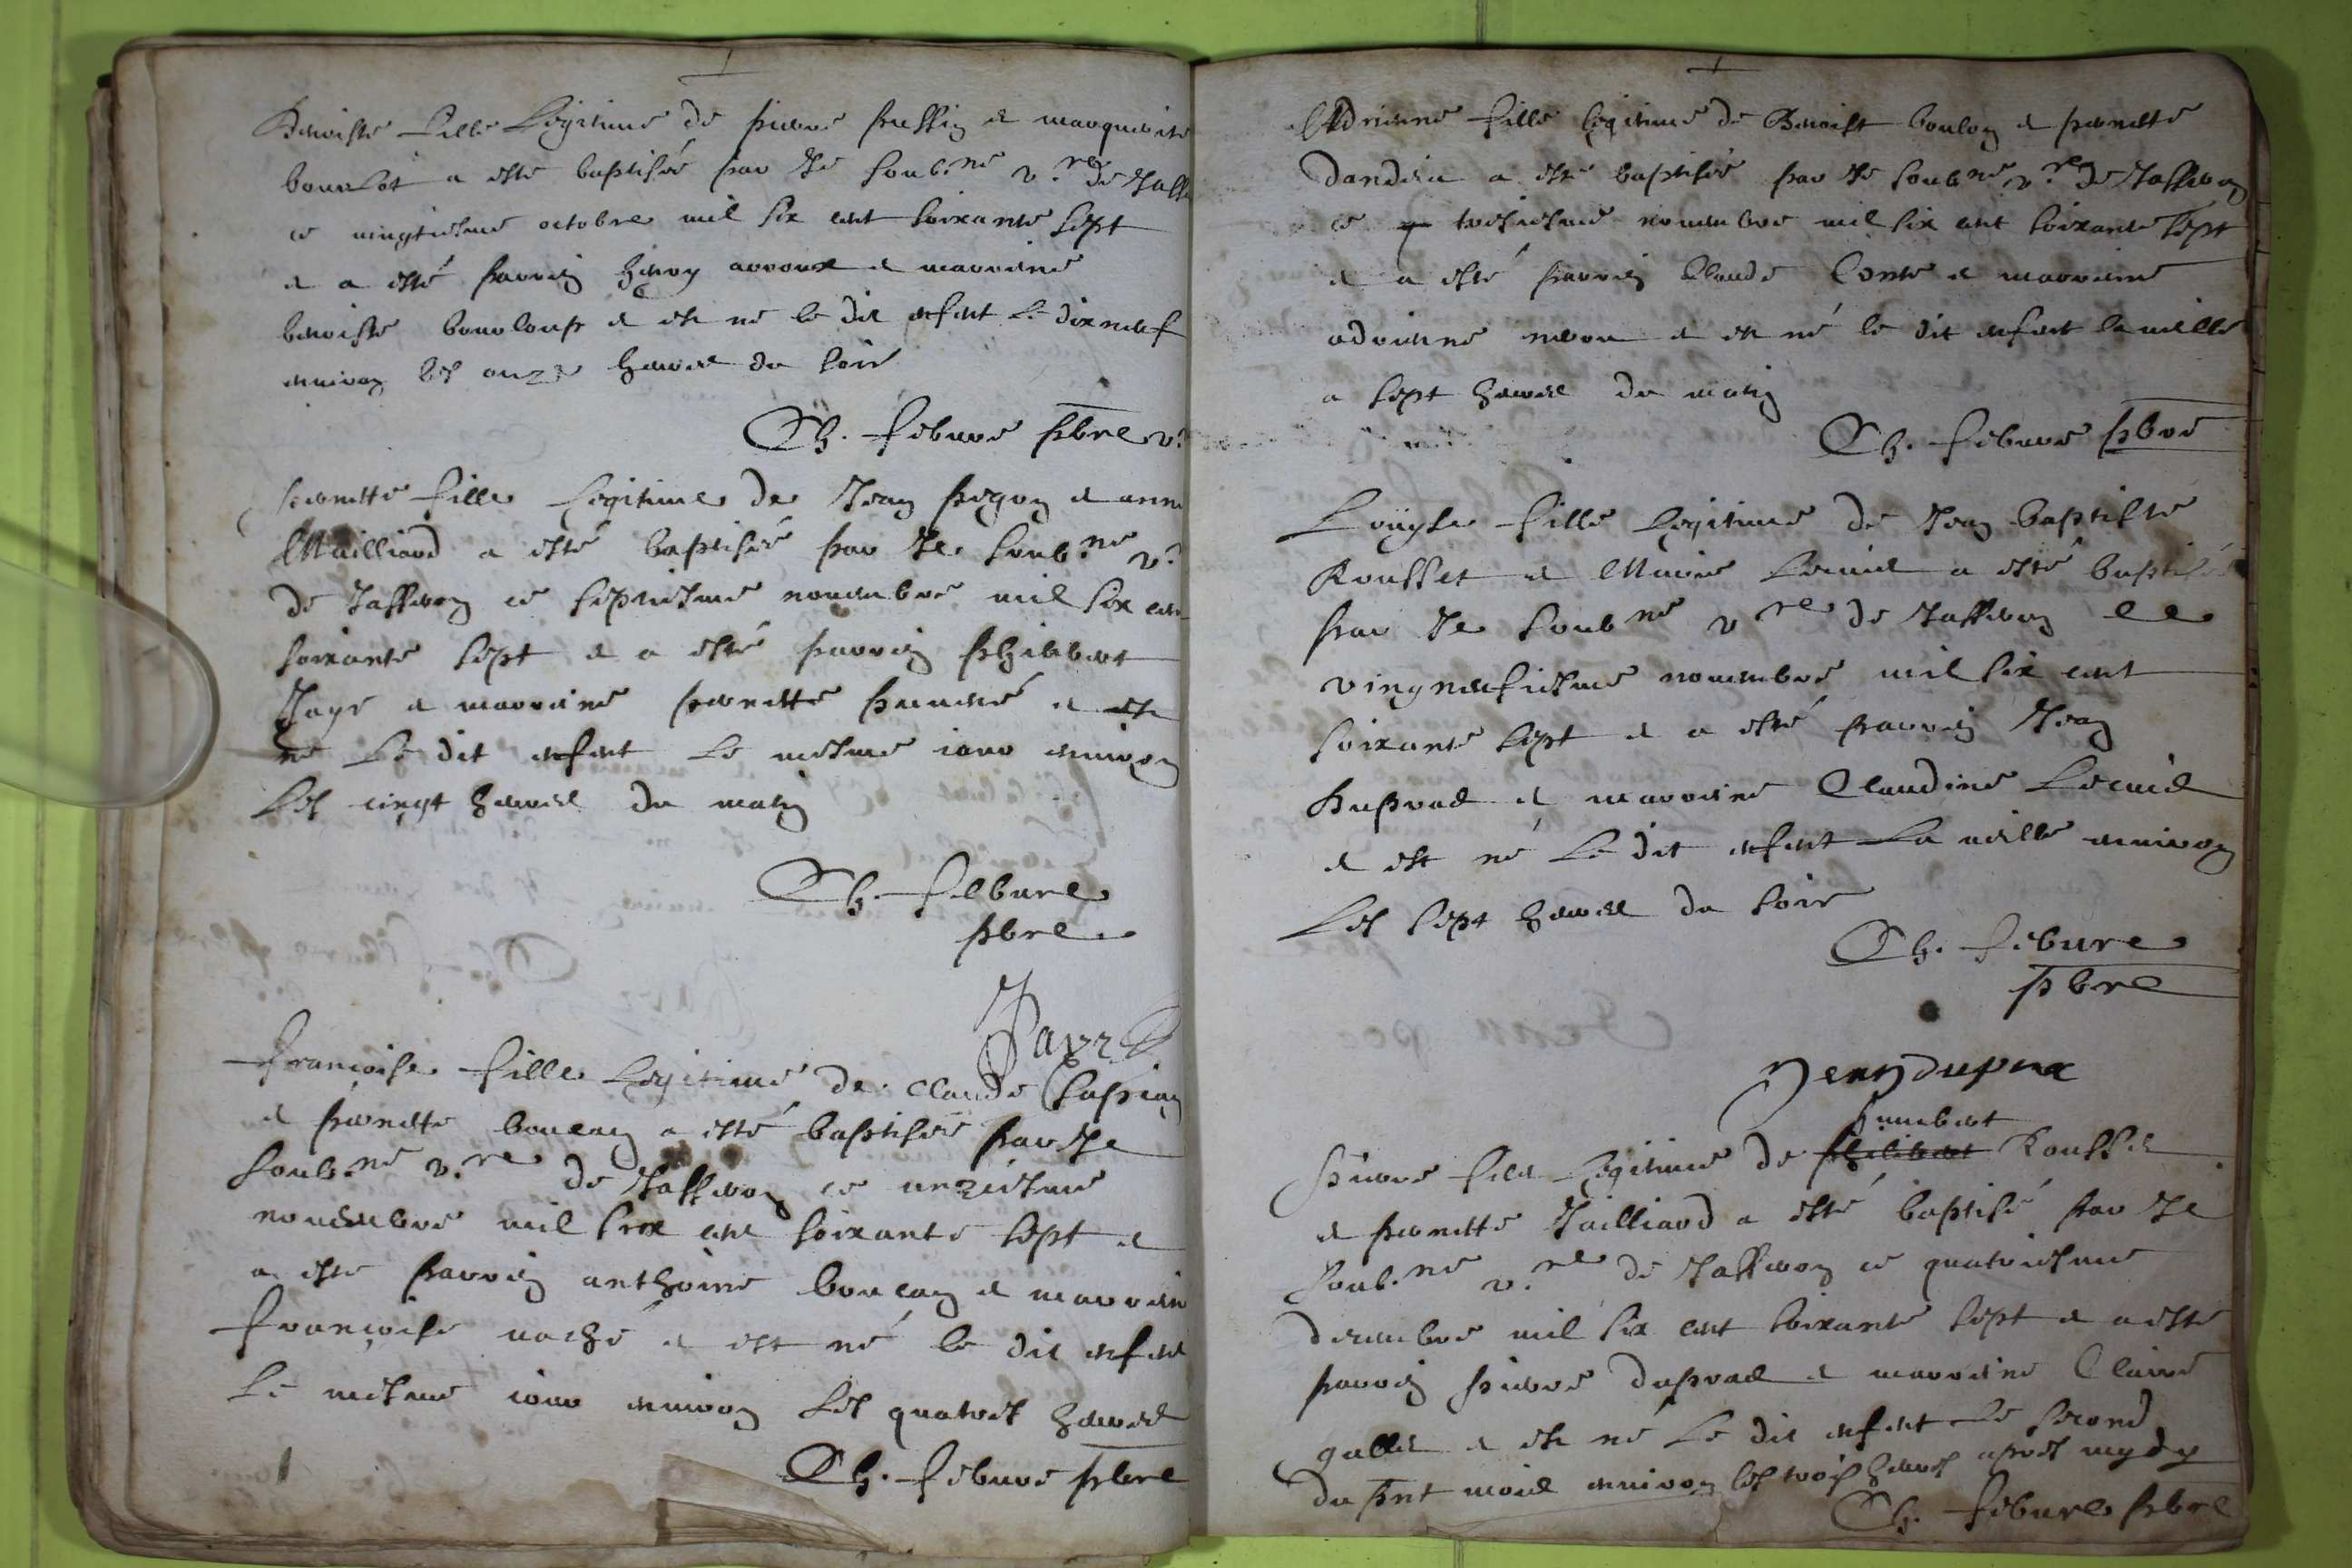 Benoiste fille Legitime de pierre pressin et marguerite
bourlot a esté baptisée par Je soub.né v.re de Jass
ce vingtiesme octobre mil six cent soixante sept
et a esté parrein henry arroux et marreine
benoiste bourloux et est né le dit enfent le dixneuf
enuiron les onze heures du soir
Ch. febure pbre v.
pierrette fille Legitime de Jean pegon et anne
Mailliard a esté baptisée par Je soub.né v.
de Jasseron ce septiesme nouembre mil six cen
soixante sept et a esté parrein philibert
Jayr et marreine pierrette et est
né Le dit enfent Le mesme iour enuiron
Les cinqt heures du matin
Ch. febure
pbre
Jayr
françoise fille Legitime de claude
et pierrette bouran a esté baptisée par Je
soub.né v.re de Jasseron ce unziesme
nouembre mil six cent soixante sept et
a esté parrein anthoine bouran et marrein
françoise uaché et est né le dit enfent
Le mesme iour enuiron Les quatres heures
Ch. febure pbre
Adrienne fille legitime de Benoist boulon et pierrette
dandein a esté baptisée par Je soubné v.re de Jasseron
ce treisiesme nouembre mil six cent soixante sept
et a esté parrein Claude Conte et marreine
adrienne et est né le dit enfent la ueille
a sept heures du matin
Ch. febure pbre
Louyse fille Legitime de Jean baptiste
Rousset et Marie a esté baptisée
par Je soubné vre de Jasseron ce
vingneufiesme nouembre mil six cent
soixante sept et a esté parrein Jean
Dupras et marreine Claudine
et est né Le dit enfent La ueille enuiron
Les sept heures du soir
Ch. febure
pbre
Jean duprax
humbert
pierre fils Legitime de philibert Rousset
et pierrette Jailliard a esté baptisé par Je
soub.né v.re de Jasseron ce quatriesme
decembre mil six cent soixante sept et a esté
parrein pierre dupras et marreine Claire
gallet et est né Le dit enfent le second
du pnt mois enuiron les trois heures apres mydy
Ch. febure pbre